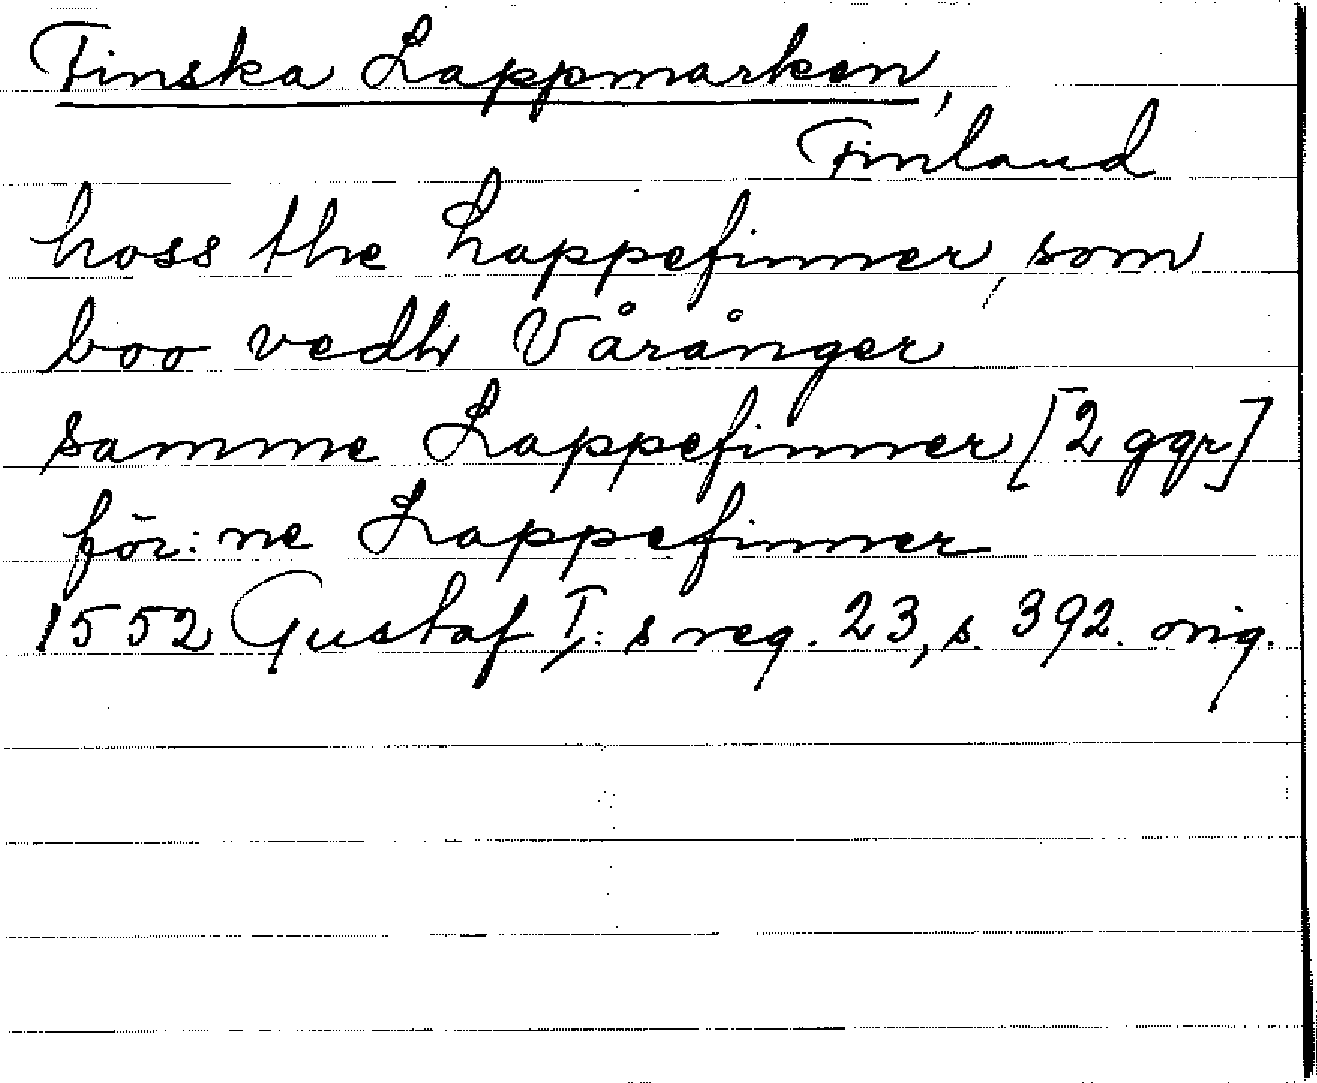 Finska Lappmarken,
Finland
hoss the Lappefinner, som
boo vedh Våränger
samme Lappefinner [2 ggr]
för:ne Lappefinner
1552 Gustaf I:s reg. 23, s. 392. orig.